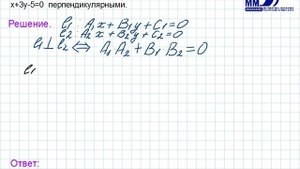 x+3y-5=0 перпендикулярными.
Решение. ℓ₁: A₁x+B₁y+C₁=0
ℓ₂: A₂x+B₂y+C₂=0
ℓ₁⊥ℓ₂ ⇔ A₁A₂+B₁B₂=0
ℓ₁
Ответ: